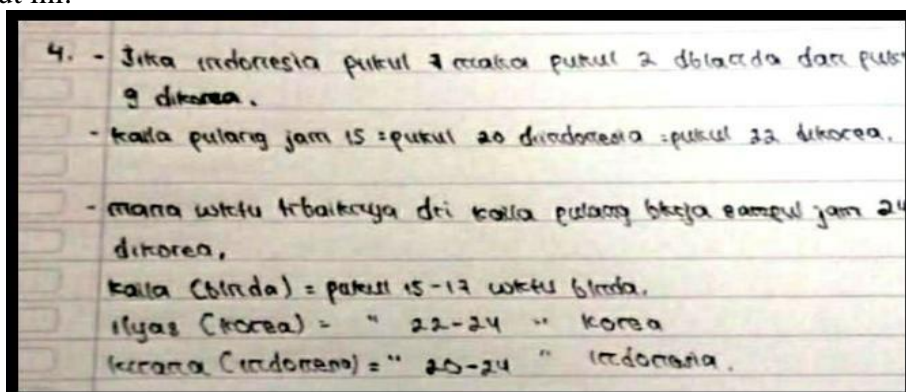 ut ini:
4. - Jika indonesia pukul 7 maka pukul 2 dblanda dan puk
9 dikorea.
- kaila pulang jam 15 = pukul 20 diindonesia = pukul 22 dikorea.
- mana wktu trbaiknya dri kaila pulang bkrja sampul jam 24
dikorea,
kaila (blnda) = pukul 15-17 wktu blnda.
Ilyas (korea) = " 22-24 " korea
kirana (indonena) = " 20-24 " indonesia.